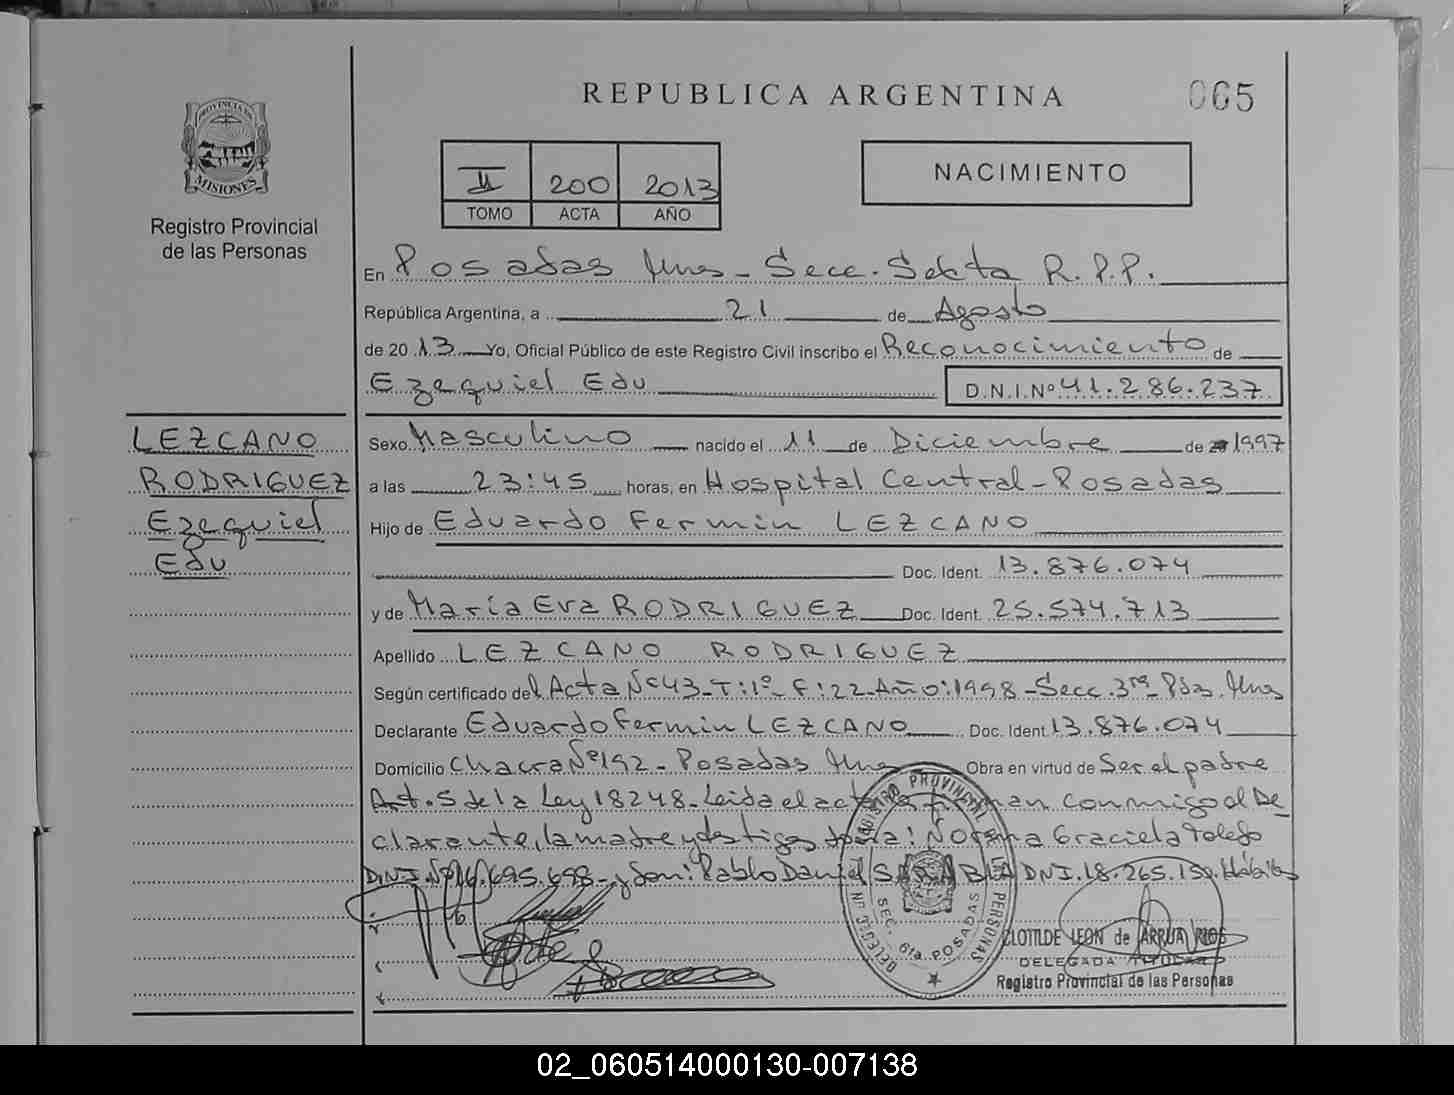 REPUBLICA ARGENTINA
065
PROVINCIA DE
MISIONES
Registro Provincial
de las Personas
II 200 2013
TOMO ACTA AÑO
NACIMIENTO
En Posadas Mnes - Secc. Sexta R.P.P.
República Argentina, a 21 de Agosto
de 2013 Yo, Oficial Público de este Registro Civil inscribo el Reconocimiento de
Ezequiel Edu D.N.I.Nº 41.286.237
LEZCANO
RODRIGUEZ
Ezequiel
Edu
Sexo Masculino nacido el 11 de Diciembre de 1997
a las 23:45 horas, en Hospital Central - Posadas
Hijo de Eduardo Fermin LEZCANO
Doc. Ident. 13.876.074
y de María Eva RODRIGUEZ Doc. Ident. 25.574.713
Apellido LEZCANO RODRIGUEZ
Según certificado del Acta Nº 43 - T: 1º - F: 22 - Año: 1998 - Secc. 3ra - Pdas. Mnes
Declarante Eduardo Fermin LEZCANO Doc. Ident. 13.876.074
Domicilio Chacra Nº 192 - Posadas Mnes Obra en virtud de Ser el padre
Art. 5 de la Ley 18248 - Leida el acta firman conmigo el De
clarante, la madre y testigos Norma Graciela Toledo
DNI. Nº 16.695.698 - y Don: Pablo Daniel SARABIA DNI. 18.265.150. Hábiles
REGISTRO PROVINCIAL DE LAS PERSONAS
SEC. 6ta. POSADAS
CLOTILDE LEON de ARRUA RIOS
DELEGADA TITULAR
Registro Provincial de las Personas
02_060514000130-007138